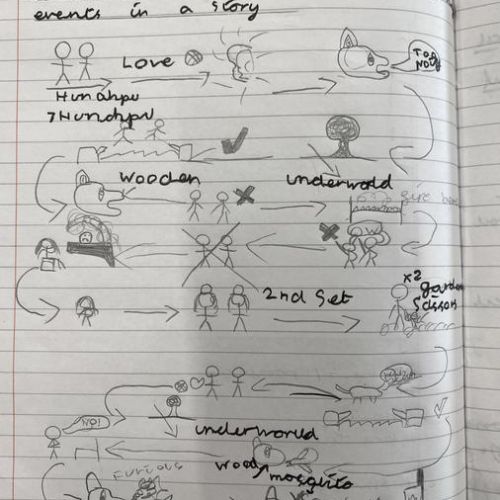 events in a story
Love
Too
Noisy
Hunahpu
7Hunahpu
Wooden
underworld
2nd Set
x2
garden
scissors
NO!
underworld
Wood
mosquito
Furious